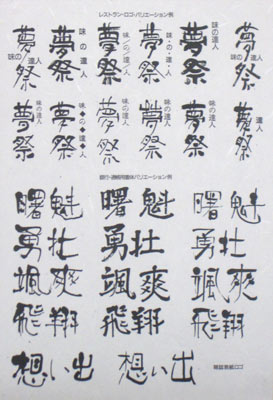 レストラン・ロゴ・バリエーション例
味の達人 夢祭
味の達人 夢祭
味の達人 夢祭
味・の・達・人 夢祭
味の達人 夢祭
味の達人 夢祭
味の達人 夢祭
味の達人 夢祭
味◆の◆達◆人 夢祭
味の達人 夢祭
味・の・達・人 夢祭
味の達人 夢祭
バリエーション例
曙 魁 曙 魁 曙 魁
勇 壮 勇 壮 勇 壮
颯 爽 颯 爽 颯 爽
飛 翔 飛 翔 飛 翔
想い出 想い出 雑誌表紙ロゴ